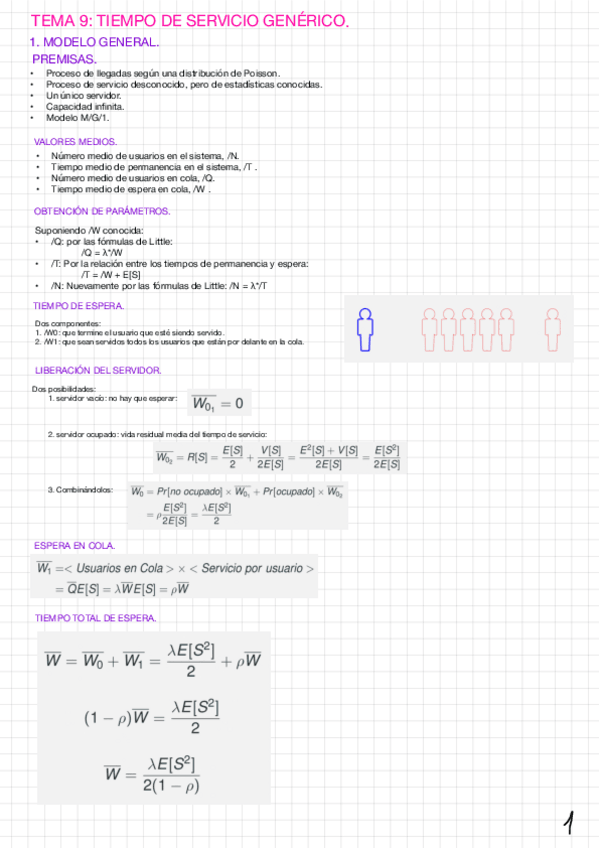 TEMA 9: TIEMPO DE SERVICIO GENÉRICO.
1. MODELO GENERAL.
PREMISAS.
• Proceso de llegadas según una distribución de Poisson.
• Proceso de servicio desconocido, pero de estadísticas conocidas.
• Un único servidor.
• Capacidad infinita.
• Modelo M/G/1.
VALORES MEDIOS.
• Número medio de usuarios en el sistema, /N.
• Tiempo medio de permanencia en el sistema, /T .
• Número medio de usuarios en cola, /Q.
• Tiempo medio de espera en cola, /W .
OBTENCIÓN DE PARÁMETROS.
Suponiendo /W conocida:
• /Q: por las fórmulas de Little:
/Q = λ*/W
• /T: Por la relación entre los tiempos de permanencia y espera:
/T = /W + E[S]
• /N: Nuevamente por las fórmulas de Little: /N = λ*/T
TIEMPO DE ESPERA.
Dos componentes:
1. /W0: que termine el usuario que esté siendo servido.
2. /W1: que sean servidos todos los usuarios que están por delante en la cola.
LIBERACIÓN DEL SERVIDOR.
Dos posibilidades:
1. servidor vacío: no hay que esperar: W̅₀₁ = 0
2. servidor ocupado: vida residual media del tiempo de servicio:
W̅₀₂ = R[S] = E[S]/2 + V[S]/2E[S] = E²[S] + V[S]/2E[S] = E[S²]/2E[S]
3. Combinándolos: W̅₀ = Pr[no ocupado] × W̅₀₁ + Pr[ocupado] × W̅₀₂
= ρ E[S²]/2E[S] = λE[S²]/2
ESPERA EN COLA.
W̅₁ =< Usuarios en Cola > × < Servicio por usuario >
= Q̅E[S] = λW̅E[S] = ρW̅
TIEMPO TOTAL DE ESPERA.
W̅ = W̅₀ + W̅₁ = λE[S²]/2 + ρW̅
(1 − ρ)W̅ = λE[S²]/2
W̅ = λE[S²]/2(1 − ρ)
1